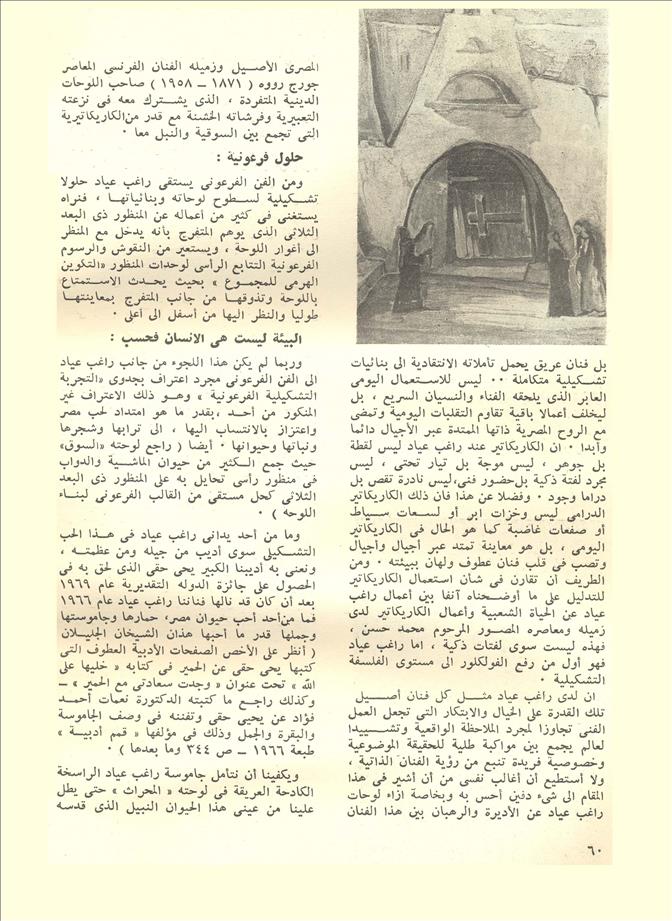 بل فنان عريق يحمل تأملاته الانتقادية الى بنائيات
تشـكيلية متكاملة ٠٠ ليس للاسـتعمال اليومى
العابر الذى يلحقه الفناء والنسيان السريع ، بل
ليخلف أعمالا باقية تقاوم التقلبات اليومية وتمضى
مع الروح المصرية ذاتها الممتدة عبر الأجيال دائما
وأبدا ٠ ان الكاريكاتير عند راغب عياد ليس لقطة
بل جوهر ، ليس موجة بل تيار تحتى ، ليس
مجرد لفتة ذكية بل حضور فنى، ليس نادرة تقص بل
دراما وجود ٠ وفضلا عن هذا فان ذلك الكاريكاتير
الدرامى ليس وخزات ابر أو لسـعات سـياط
أو صفعات غاضبة كما هو الحال فى الكاريكاتير
اليومى ، بل هو معاينة تمتد عبر أجيال وأجيال
وتصب فى قلب فنان عطوف ولهان ببيئته ٠ ومن
الطريف أن تقارن فى شأن استعمال الكاريكاتير
للتدليل على ما أوضـحناه آنفا بين أعمال راغب
عياد عن الحياة الشعبية وأعمال الكاريكاتير لدى
زميله ومعاصره المصـور المرحوم محمد حسن ،
فهذه ليست سوى لفتات ذكية ، اما راغب عياد
فهو أول من رفع الفولكلور الى مستوى الفلسفة
التشكيلية ٠
ان لدى راغب عياد مثـل كل فنان أصـيل
تلك القدرة على الخيال والابتكار التى تجعل العمل
الفنى تجاوزا لمجرد الملاحظة الواقعية وتشـييدا
لعالم يجمع بين مواكبة طلية للحقيقة الموضوعية
وخصوصية فريدة تنبع من رؤية الفنان الذاتية ،
ولا أستطيع أن أغالب نفسى من أن أشير فى هذا
المقام الى شىء دفين أحس به وبخاصة ازاء لوحات
راغب عياد عن الأديرة والرهبان بين هذا الفنان
المصرى الأصـيل وزميله الفنان الفرنسى المعاصر
جورج رووه ( ١٨٧١ ــ ١٩٥٨ ) صاحب اللوحات
الدينية المتفردة ، الذى يشـترك معه فى نزعته
التعبيرية وفرشاته الخشنة مع قدر من الكاريكاتيرية
التى تجمع بين السوقية والنبل معا ٠
حلول فرعونية :
ومن الفن الفرعونى يستقى راغب عياد حلولا
تشـكيلية لسـطوح لوحاته وبنائياتهـا ، فنراه
يستغنى فى كثير من أعماله عن المنظور ذى البعد
الثلاثى الذى يوهم المتفرج بأنه يدخل مع المنظر
الى أغوار اللوحة ، ويستعير من النقوش والرسوم
الفرعونية التتابع الرأسى لوحدات المنظور «التكوين
الهرمى للمجمـوع » بحيث يحـدث الاسـتمتاع
باللوحة وتذوقهـا من جانب المتفرج بمعاينتهـا
طوليا والنظر اليها من أسفل الى أعلى ٠
البيئة ليست هى الانسان فحسب :
وربما لم يكن هذا اللجوء من جانب راغب عياد
الى الفن الفرعونى مجرد اعتراف بجدوى «التجربة
التشكيلية الفرعونية » وهـو ذلك الاعتراف غير
المنكور من أحـد ،بقدر ما هو امتداد لحب مصر
واعتزاز بالانتساب اليها ، الى ترابها وشجرها
ونباتها وحيوانها ٠ أيضا ( راجع لوحته «السوق»
حيث جمع الـكثير من حيوان الماشـية والدواب
فى منظور رأسى تحايل به على المنظور ذى البعد
الثلاثى كحل مستقى من القالب الفرعونى لبنـاء
اللوحه ) ٠
وما من أحد يدانى راغب عياد فى هـذا الحب
التشـكيلى سوى أديب من جيله ومن عظمتـه ،
ونعنى به أديبنا الكبير يحى حقى الذى لحق به فى
الحصول على جائزة الدوله التقديرية عام ١٩٦٩
بعد أن كان قد نالها فناننا راغب عياد عام ١٩٦٦
فما من أحد أحب حيوان مصر، حمارها وجاموستها
وجملها قدر ما أحبها هذان الشـيخان الجليـلان
( أنظر على الأخص الصفحات الأدبية العطوف التى
كتبها يحى حقى عن الحمير فى كتابه « خليها على
الله » تحت عنوان « وجدت سعادتى مع الحمير » ــ
وكذلك راجـع ما كتبته الدكتورة نعمات أحمـد
فؤاد عن يحيى حقى وتفننه فى وصف الجاموسة
والبقرة والجمل وذلك فى مؤلفها « قمم أدبيـة »
طبعة ١٩٦٦ ــ ص ٣٤٤ وما بعدها ) ٠
ويكفينا أن نتأمل جاموسة راغب عياد الراسخة
الكادحة العريقة فى لوحته « المحراث » حتى يطل
علينا من عينى هذا الحيوان النبيل الذى قدسه
٦٠